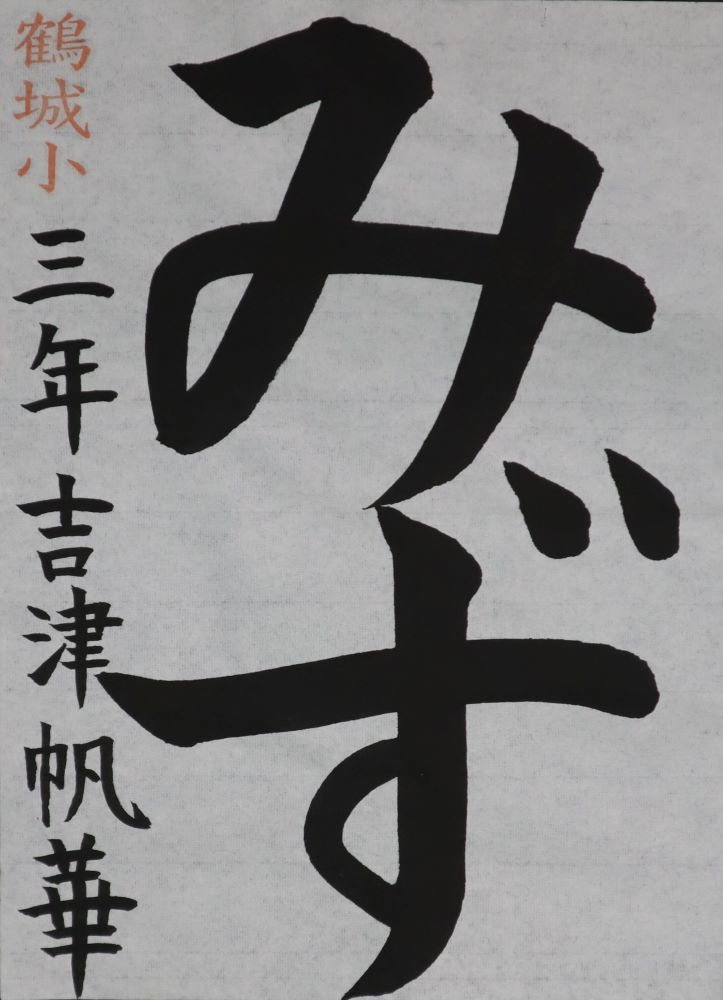 みず
鶴城小三年吉津帆華